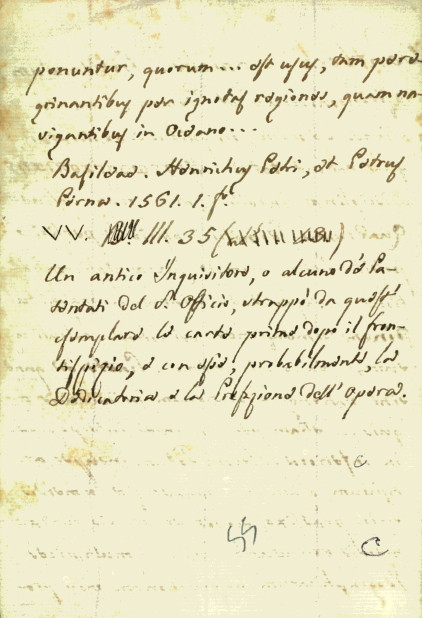 ponuntur, quorum... est usus, tam pere
grinantibus per ignotas regiones, quam na-
vigantibus in Oceano...
Basileae. Henrichus Petri, et Petrus
Perna. 1561. 1. f.
VV. III. 35 (
Un antico Inquisitore, o alcuno de' Pa-
tentati del S. Officio, strappò da quest'
esemplare la carta prima dopo il fron-
tispizio, e con essa, probabilmente, la
Dedicatoria e la Prefazione dell' Opera.
C